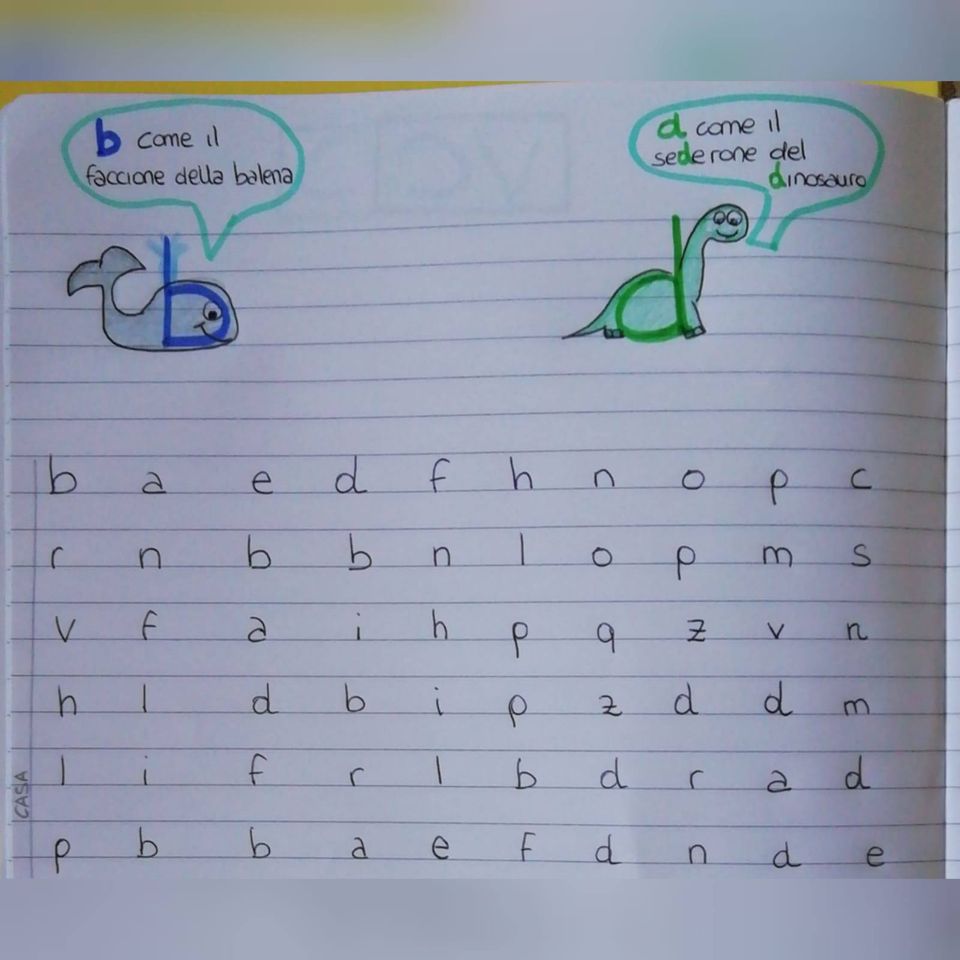 b come il
faccione della balena
d come il
sederone del
dinosauro
b
d
b a e d f h n o p c
r n b b n l o p m s
v f a i h p q z v n
h l d b i p z d d m
l i f r l b d r a d
p b b a e f d n d e
CASA